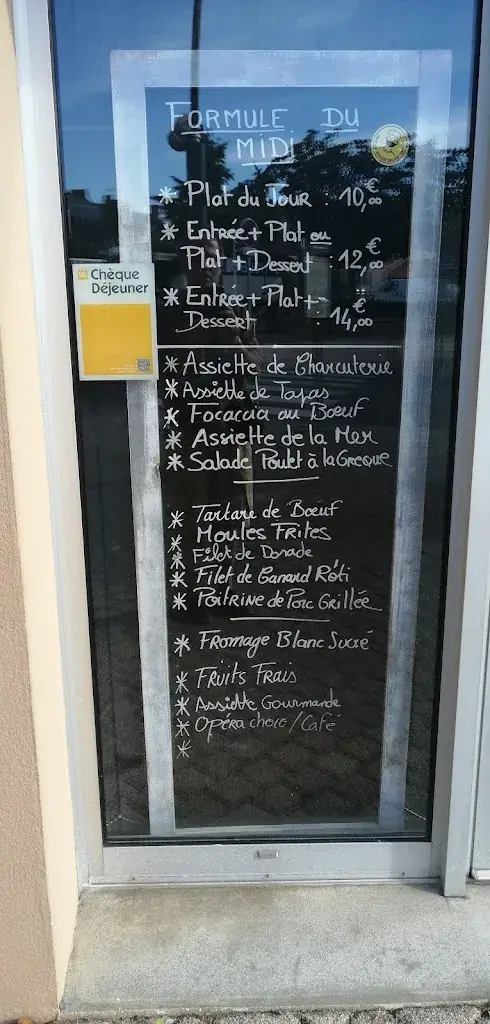 FORMULE DU
MIDI
* Plat du Jour : 10,00€
* Entrée + Plat ou
Plat + Dessert : 12,00€
* Entrée + Plat +
Dessert : 14,00€
Chèque
Déjeuner
* Assiette de Charcuterie
* Assiette de Tapas
* Focaccia au Bœuf
* Assiette de la Mer
* Salade Poulet à la Grecque
* Tartare de Bœuf
* Moules Frites
* Filet de Dorade
* Filet de Canard Rôti
* Poitrine de Porc Grillée
* Fromage Blanc Sucré
* Fruits Frais
* Assiette Gourmande
* Opéra choco / Café
*